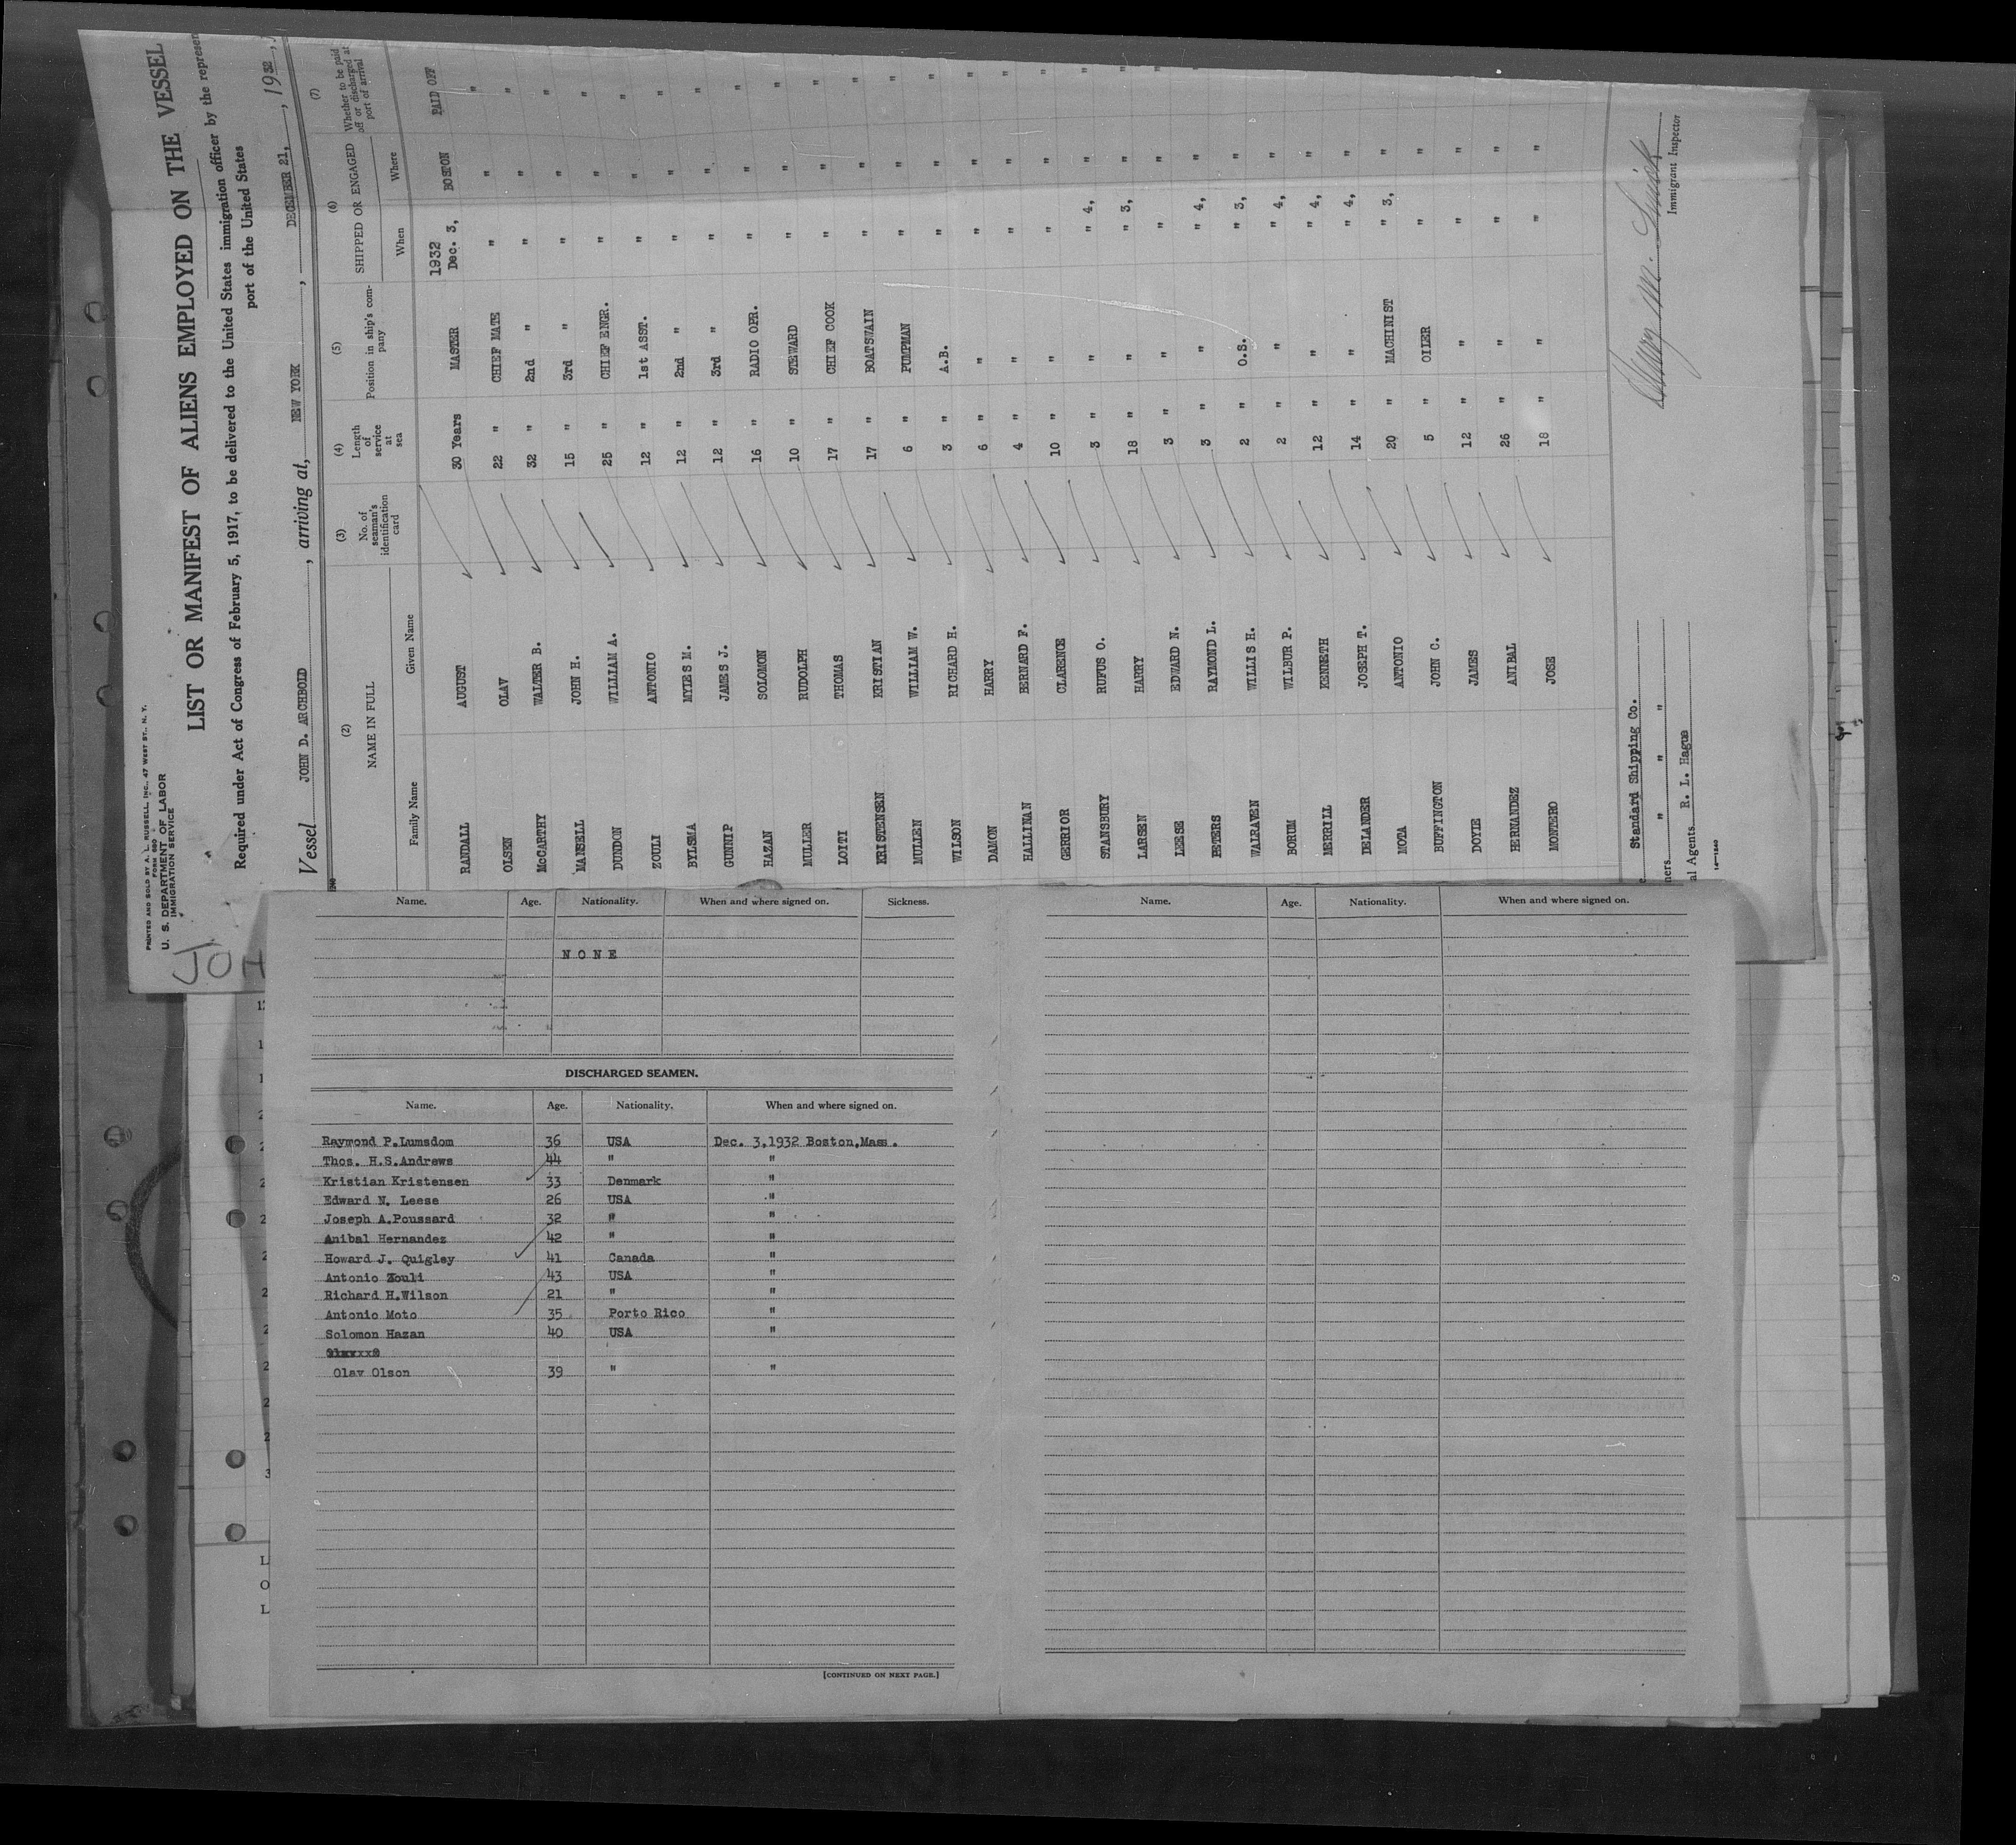 PRINTED AND SOLD BY A. L. RUSSELL, INC., 47 WEST ST., N. Y.
FORM 680
U. S. DEPARTMENT OF LABOR
IMMIGRATION SERVICE
LIST OR MANIFEST OF ALIENS EMPLOYED ON THE VESSEL
Required under Act of Congress of February 5, 1917, to be delivered to the United States immigration officer by the represen
port of the United States
Vessel JOHN D. ARCHBOLD, arriving at, NEW YORK, DECEMBER 21, 1932,
(2) (3) (4) (5) (6) (7)
NAME IN FULL No. of seaman's identification card Length of service at sea Position in ship's company SHIPPED OR ENGAGED Whether to be paid off or discharged at port of arrival
Family Name Given Name When Where
1932
RANDALL AUGUST 30 Years MASTER Dec. 3, BOSTON PAID OFF
OLSEN OLAV 22 " CHIEF MATE " " "
McCARTHY WALTER B. 32 " 2nd " " " "
MANSELL JOHN H. 15 " 3rd " " " "
DUNDON WILLIAM A. 25 " CHIEF ENGR. " " "
ZOULI ANTONIO 12 " 1st ASST. " " "
BYLSMA MYLES M. 12 " 2nd " " " "
GUNNIP JAMES J. 12 " 3rd " " " "
HAZAN SOLOMON 16 " RADIO OPR. " " "
MULLER RUDOLPH 10 " STEWARD " " "
LOTTI THOMAS 17 " CHIEF COOK " " "
KRISTENSEN KRISTIAN 17 " BOATSWAIN " " "
MULLEN WILLIAM W. 6 " PUMPMAN " " "
WILSON RICHARD H. 3 " A.B. " " "
DAMON HARRY 6 " " " " "
HALLINAN BERNARD F. 4 " " " " "
GERRIOR CLARENCE 10 " " " " "
STANSBURY RUFUS O. 3 " " " 4, " "
LARSEN HARRY 18 " " " 3, " "
LEESE EDWARD N. 3 " " " " "
PETERS RAYMOND L. 3 " " " 4, "
WALRAVEN WILLIS H. 2 " O.S. " 3, "
BORUM WILBUR P. 2 " " " 4, "
MERRILL KENNETH 12 " " " 4, "
DELANDER JOSEPH T. 14 " " " 4, "
MOTA ANTONIO 20 " MACHINIST " 3, "
BUFFINGTON JOHN C. 5 " OILER " "
DOYLE JAMES 12 " " " "
HERNANDEZ ANIBAL 26 " " " "
MONTERO JOSE 18 " " " "
Standard Shipping Co.
ners " " "
al Agents R. L. Hague
Immigrant Inspector
14—1240
JOH
Name. Age. Nationality. When and where signed on. Sickness.
NONE
DISCHARGED SEAMEN.
Name. Age. Nationality. When and where signed on.
Raymond P.Lumsdom 36 USA Dec. 3,1932 Boston,Mass.
Thos. H.S.Andrews 44 " "
Kristian Kristensen 33 Denmark "
Edward N. Leese 26 USA "
Joseph A.Poussard 32 " "
Anibal Hernandez 42 " "
Howard J. Quigley 41 Canada "
Antonio Zouli 43 USA "
Richard H.Wilson 21 " "
Antonio Moto 35 Porto Rico "
Solomon Hazan 40 USA "
Olav Olson 39 " "
[CONTINUED ON NEXT PAGE.]
Name. Age. Nationality. When and where signed on.